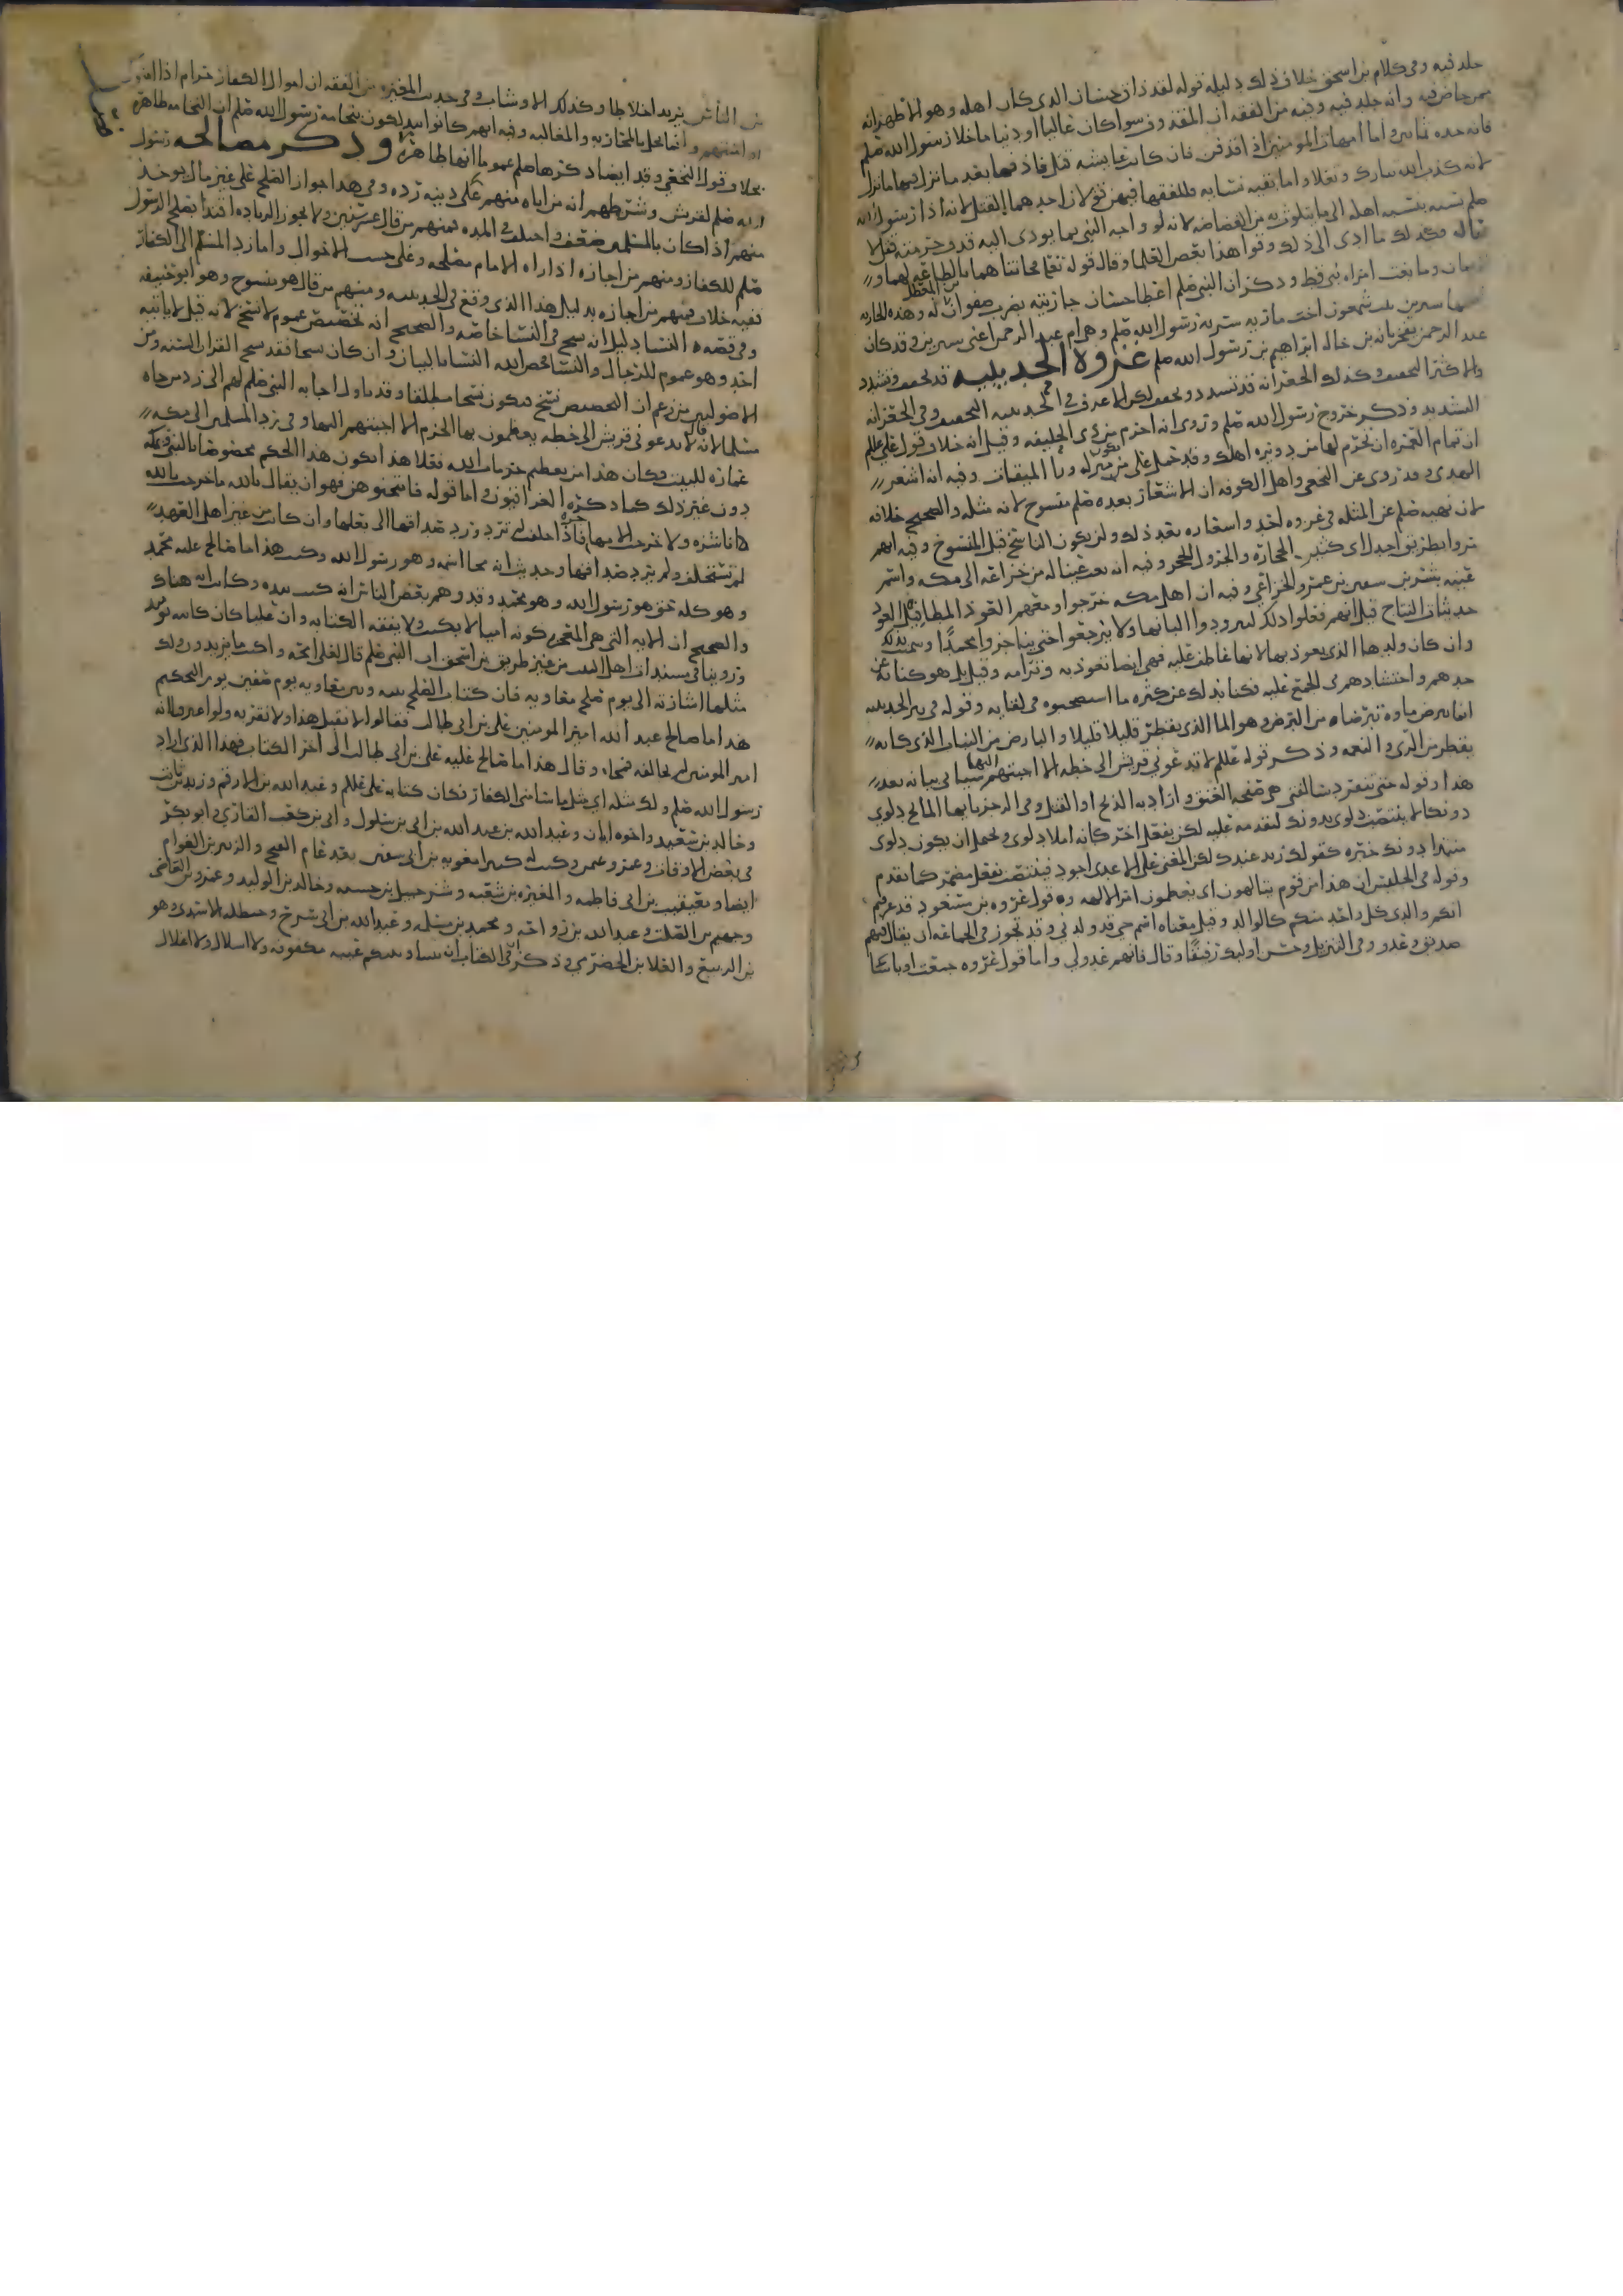 جلد فيه وفي كلام بن اسحق خلاف ذلك دليله قوله لقد ذاق حسان الذي كان اهله وهو الاظهر انه
ممن خاض فيه وانه جلد فيه وفيه من الفقه ان
فانه حده ثمانين واما امهات المومنين اذا قذفن فان كانت عايشه قتل قاذفها بعد ما نزل فيها ما نزل
لانه كذب الله تبارك وتعلا واما بقيه نسايه فللفقها فيهن قولان احدهما القتل لانه اذا رسول الله
صلم
قاله وكذلك ما ادى الى ذلك وقوا هذا بعض العلما وقال قوله تعلى فخانتاهما بالطاعه لهما و
وما بغت امراه نبي قط وذكر ان النبي صلم اعطا حسان جاريته بضرب صفوان بن المعطل له وهذه الجاريه
اسمها سيرين بنت شمعون اخت ماريه سريه رسول الله صلم وهي ام عبد الرحمن اعني سيرين وقد كان
عبد الرحمن يفخر بانه بن خاله ابراهيم بن رسول الله صلم غزوة الحديبية قد تخفف وتشدد
والاكثر التخفيف وكذلك الجعرانه قد تشدد وتخفف لكن الاعرف في الحديبيه التخفيف وفي الجعرانه
التشديد وذكر خروج رسول الله صلم وروي انه احرم من ذي الحليفه وقيل انه خلاف قول علي عللم
ان تمام العمره ان تحرم لها من دويره اهلك وقد حمل على من يكون منزله ورا الميقات وفيه انه اشعر
الهدي وقد روي عن النخعي واهل الكوفه ان الاشعار بعده صلم منسوخ لانه مثله والصحيح خلافه
لان نهيه صلم عن المثله في غزوه احد واشعاره بعد ذلك ولن يكون الناسخ قبل المنسوخ وفيه انهم
مروا بطريق اجدل اي كثير الحجاره والجرول الحجر وفيه انه بعث عينا له من خزاعه الى مكه واسم
عينه بشر بن سفين بن عمرو الخزاعي وفيه ان اهل مكه خرجوا ومعهم العوذ المطافيل العوذ
حديثات النتاج قيل انهم فعلوا ذلك ليتزودوا البانها ولا يرجعوا حتى يناجزوا محمدا وسمي بذلك
وان كان ولدها الذي يعوذ بها لانها عاطف عليه فهي ايضا تعوذ به وترامه وقيل بل هو كنايه عن
جدهم واحتشادهم في الجمع عليه فكنا بذلك عن كثره ما استصحبوه في لقايه وقوله في بير الحديبيه
انما يتبرض ماوه تبرضا من البرض وهو الما الذي يقطر قليلا قليلا والبارض من النبات الذي كانه
يقطر من الري والنعمه وذكر قوله عللم لا تدعوني قريش الى خطه الا اجبتهم اليها سياتي بيانه بعد
هذا وقوله حتى تنفرد سالفتي هي صفحه العنق واراد به الذبح او القتل وفي الرجز يا ايها المايح دلوي
دونكا لا ينتصب دلوي بدونك لتقدمه عليه لكن بفعل اخر كانه املا دلوي ويحتمل ان يكون دلوي
مبتدا دونك خبره كقولك زيد عندك لكن المعنى على الاعرى اجود فينتصب بفعل مضمر كما تقدم
وقوله في الحليس ان هذا من قوم يتالهون اي يعظمون امر الاله وقول عروه بن مسعود قد عرفتم
انكم والدي كل واحد منكم كالوالد وقيل معناه انتم حي قد ولدني وقد تجوز في الجماعه ان يقال فيهم
صديق وعدو وفي التنزيل وحسن اولئك رفيقا وقال فانهم عدو لي واما قول عروه جمعت اوباشا
من الناس يريد اخلاطا وكذلك الاوشاب وفي حديث المغيره من الفقه ان اموال الكفار حرام اذا
وانما تحل بالمحاربه والمغالبه وفيه انهم كانوا يتدلكون بنخامه رسول الله صلم ان النخامه طاهره
خلاف قول النخعي وقد ايضا ذكرها صلم عموما انها طاهره وذكر مصالحة رسول
الله صلم لقريش وشرطهم انه من اتاه منهم على دينه رده وفي هذا جواز الصلح على غير مال يوخذ
منهم اذا كان بالمسلمين ضعف واختلف في المده فمنهم من قال عشر سنين ولا تجوز الزياده اقتدا بصلح الرسول
صلم للكفار ومنهم من اجازه اذا راه الامام مصلحه وعلى حسب الاحوال واما رد المسلم الى الكفار
ففيه خلاف فمنهم من اجازه بدليل هذا الذي وقع في الحديبيه ومنهم من قال هو منسوخ وهو ابو حنيفه
وفي قصه النسا دليل انه نسخ في النسا خاصه والصحيح انه تخصيص عموم لا نسخ لانه قبل
احد وهو عموم للرجال والنسا فخص الله النسا بالبيان وان كان نسخا فقد نسخ القران السنه ومن
الاصوليين من زعم ان التخصيص نسخ فيكون نسخا مطلقا وقد تاول اجابه النبي صلم لهم الى رد من جاه
مسلما لانه قال لا يدعوني قريش الى خطه يعظمون بها الحرم الا اجبتهم اليها وفي رد المسلمين الى مكه
عماره للبيت وكان هذا من تعظيم حرمات الله فعلا هذا يكون هذا الحكم مخصوصا بالنبي وبمكه
دون غير ذلك كما ذكره العراقيون واما قوله فامتحنوهن فهو ان يقال بالله ما خرجت
ناشزه ولا خرجت الا مهاجره فاذا حلفت لم ترد ورد صداقها الى بعلها وان كانت من غير اهل العهد
لم تستحلف ولم يرد صداقها وحديث انه محا اسمه وهو رسول الله وكتب هذا ما صالح عليه محمد
وهو كله حق هو رسول الله وهو محمد وقد وهم بعض الناس انه كتب بيده وكانت ايه هناك
والصحيح ان الايه التي هي كونه اميا لا يكتب ولا يفقه الكتابه وان عليا كان كاتبه يوميذ
وروينا في مسندات اهل البيت من غير طريق بن اسحق ان النبي صلم قال لعلي امحه واكتب ما يريدون ولك
مثلها اشارته الى يوم صلح معاويه فان كتاب الصلح بينه وبين معاويه يوم صفين يوم التحكيم
هذا ما صالح عبد الله امير المومنين علي بن ابي طالب فقالوا لا نقبل هذا ولا نقر به ولو
امير المومنين لم نخالفه فمحاه وقال هذا ما صالح عليه علي بن ابي طالب الى اخر الكتاب فهذا الذي اراد
رسول الله صلم ولك مثله اي مثل ما الكفار فكان كتابه علي عللم وعبد الله بن الارقم وزيد بن ثابت
وخالد بن سعيد واخوه ابان وعبد الله بن عبد الله بن ابي بن سلول وابي بن كعب القاري وابو بكر
في بعض الاوقات وعمر وعمن وكتب له كثيرا معويه بن ابي سفين بعد عام الفتح والزبير بن العوام
ايضا ومعيقيب بن ابي فاطمه والمغيره بن شعبه وشرحبيل بن حسنه وخالد بن الوليد وعمرو بن العاصي
وجهيم بن الصلت وعبد الله بن رواحه ومحمد بن مسلمه وعبد الله بن ابي سرح وحنظله الاسيدي وهو
بن الربيع والعلا بن الحضرمي وذكر في الكتاب ان بيننا وبينكم عيبه مكفوفه ولا اسلال ولا اغلال